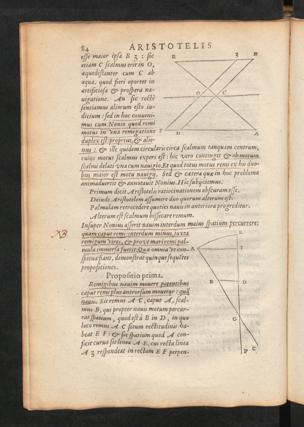 84 ARISTOTELIS
esse maior ipsa B Z : sic
etiam C scalmus erit in O,
aquedistanter cum C ab
aqua. quod fieri oportet in
artificiosa & prospera na-
uigatione. An sic recte
sentiamus aliorum esto iu-
dicium : sed in hoc conueni-
mus cum Nonio quod remi
motus in una remigatione
duplex est : proprius, & alie-
nus : & ille quidem circularis circa scalmum tanquam centrum,
cuius motus scalmus expers est : hic vero contingit & ob motum
scalmi delati vna cum nauigio. Et quod totus motus remi ex his duo-
bus maior est motu nauigij. Sed & cætera quæ in hoc problema
animaduertit & annotauit Nonius. Hic subijciemus.
Primum dicit Aristotelis ratiocinationem obscuram esse.
Deinde Aristotelem assumere duo quorum alterum est:
Palmulam retrocedere quoties nauis in anteriora progreditur.
Alterum est scalmum bifecare remum.
Insuper Nonius asserit nauim interdum maius spatium percurrere
quam caput remi interdum minus, iuxta
remigum vires, & prout mari remi pal-
mula immersa fuerit. Quæ omnia vt con-
spicua fiant, demonstrat quinque sequẽtes
propositiones.
Propositio prima.
Remigibus nauim mouere potentibus
caput remi plus anteriorsum mouetur : quã
nauis. Sit remus A C, caput A, scal-
mus B, qui propter naus motum percur-
rat spatium, quod est à B in D, in quo
loco remus A C situm rectitudinis ha-
beat E F : & sic spatium quod A con-
ficit cursus sit linea A E, cui recta linea
A Z respondeat in rectum E F perpen-